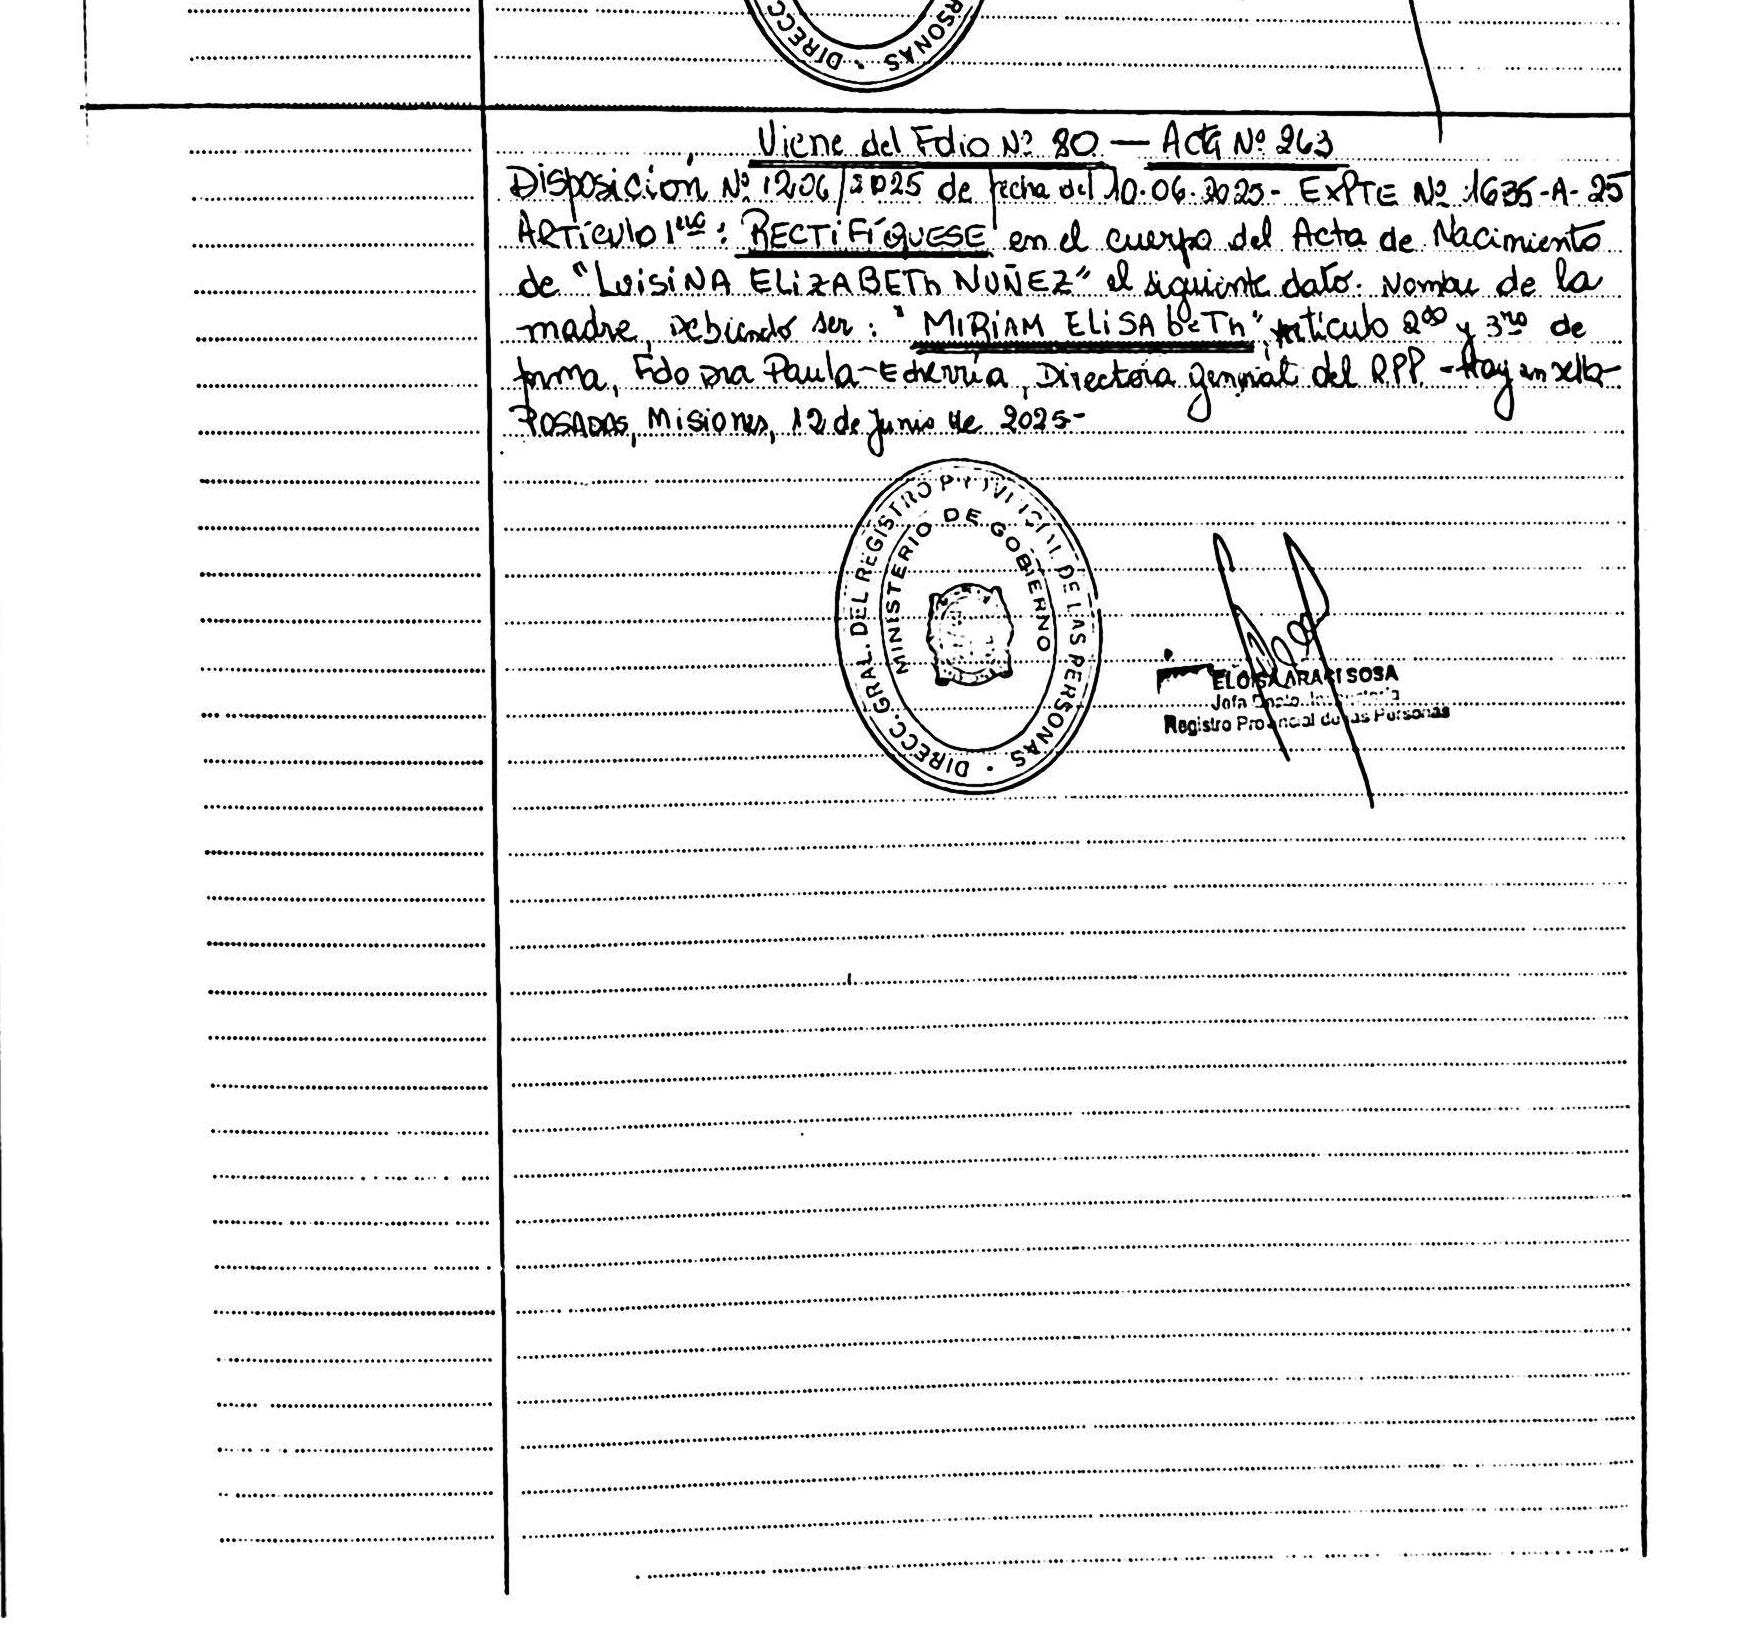 DIRECC SONAS
Viene del Folio Nº 80 — Acta Nº 263
Disposición Nº 1206/2025 de fecha del 10.06.2025- EXPTE Nº 1635-A-25
ARTículo 1ero: RECTIFÍQUESE en el cuerpo del Acta de Nacimiento
de "LUISINA ELIZABETH NUÑEZ" el siguiente dato. Nombre de la
madre, Debiendo ser: "MIRIAM ELISABETH", Artículo 2do y 3ro de
forma, Fdo Dra Paula Echerría, Directora general del RPP - Hay un sello-
POSADAS, Misiones, 12 de Junio de 2025-
DIRECC. GRAL. DEL REGISTRO PROVINCIAL DE LAS PERSONAS
MINISTERIO DE GOBIERNO
ELOISA ARACI SOSA
Jefa Dpto.
Registro Provincial de las Personas